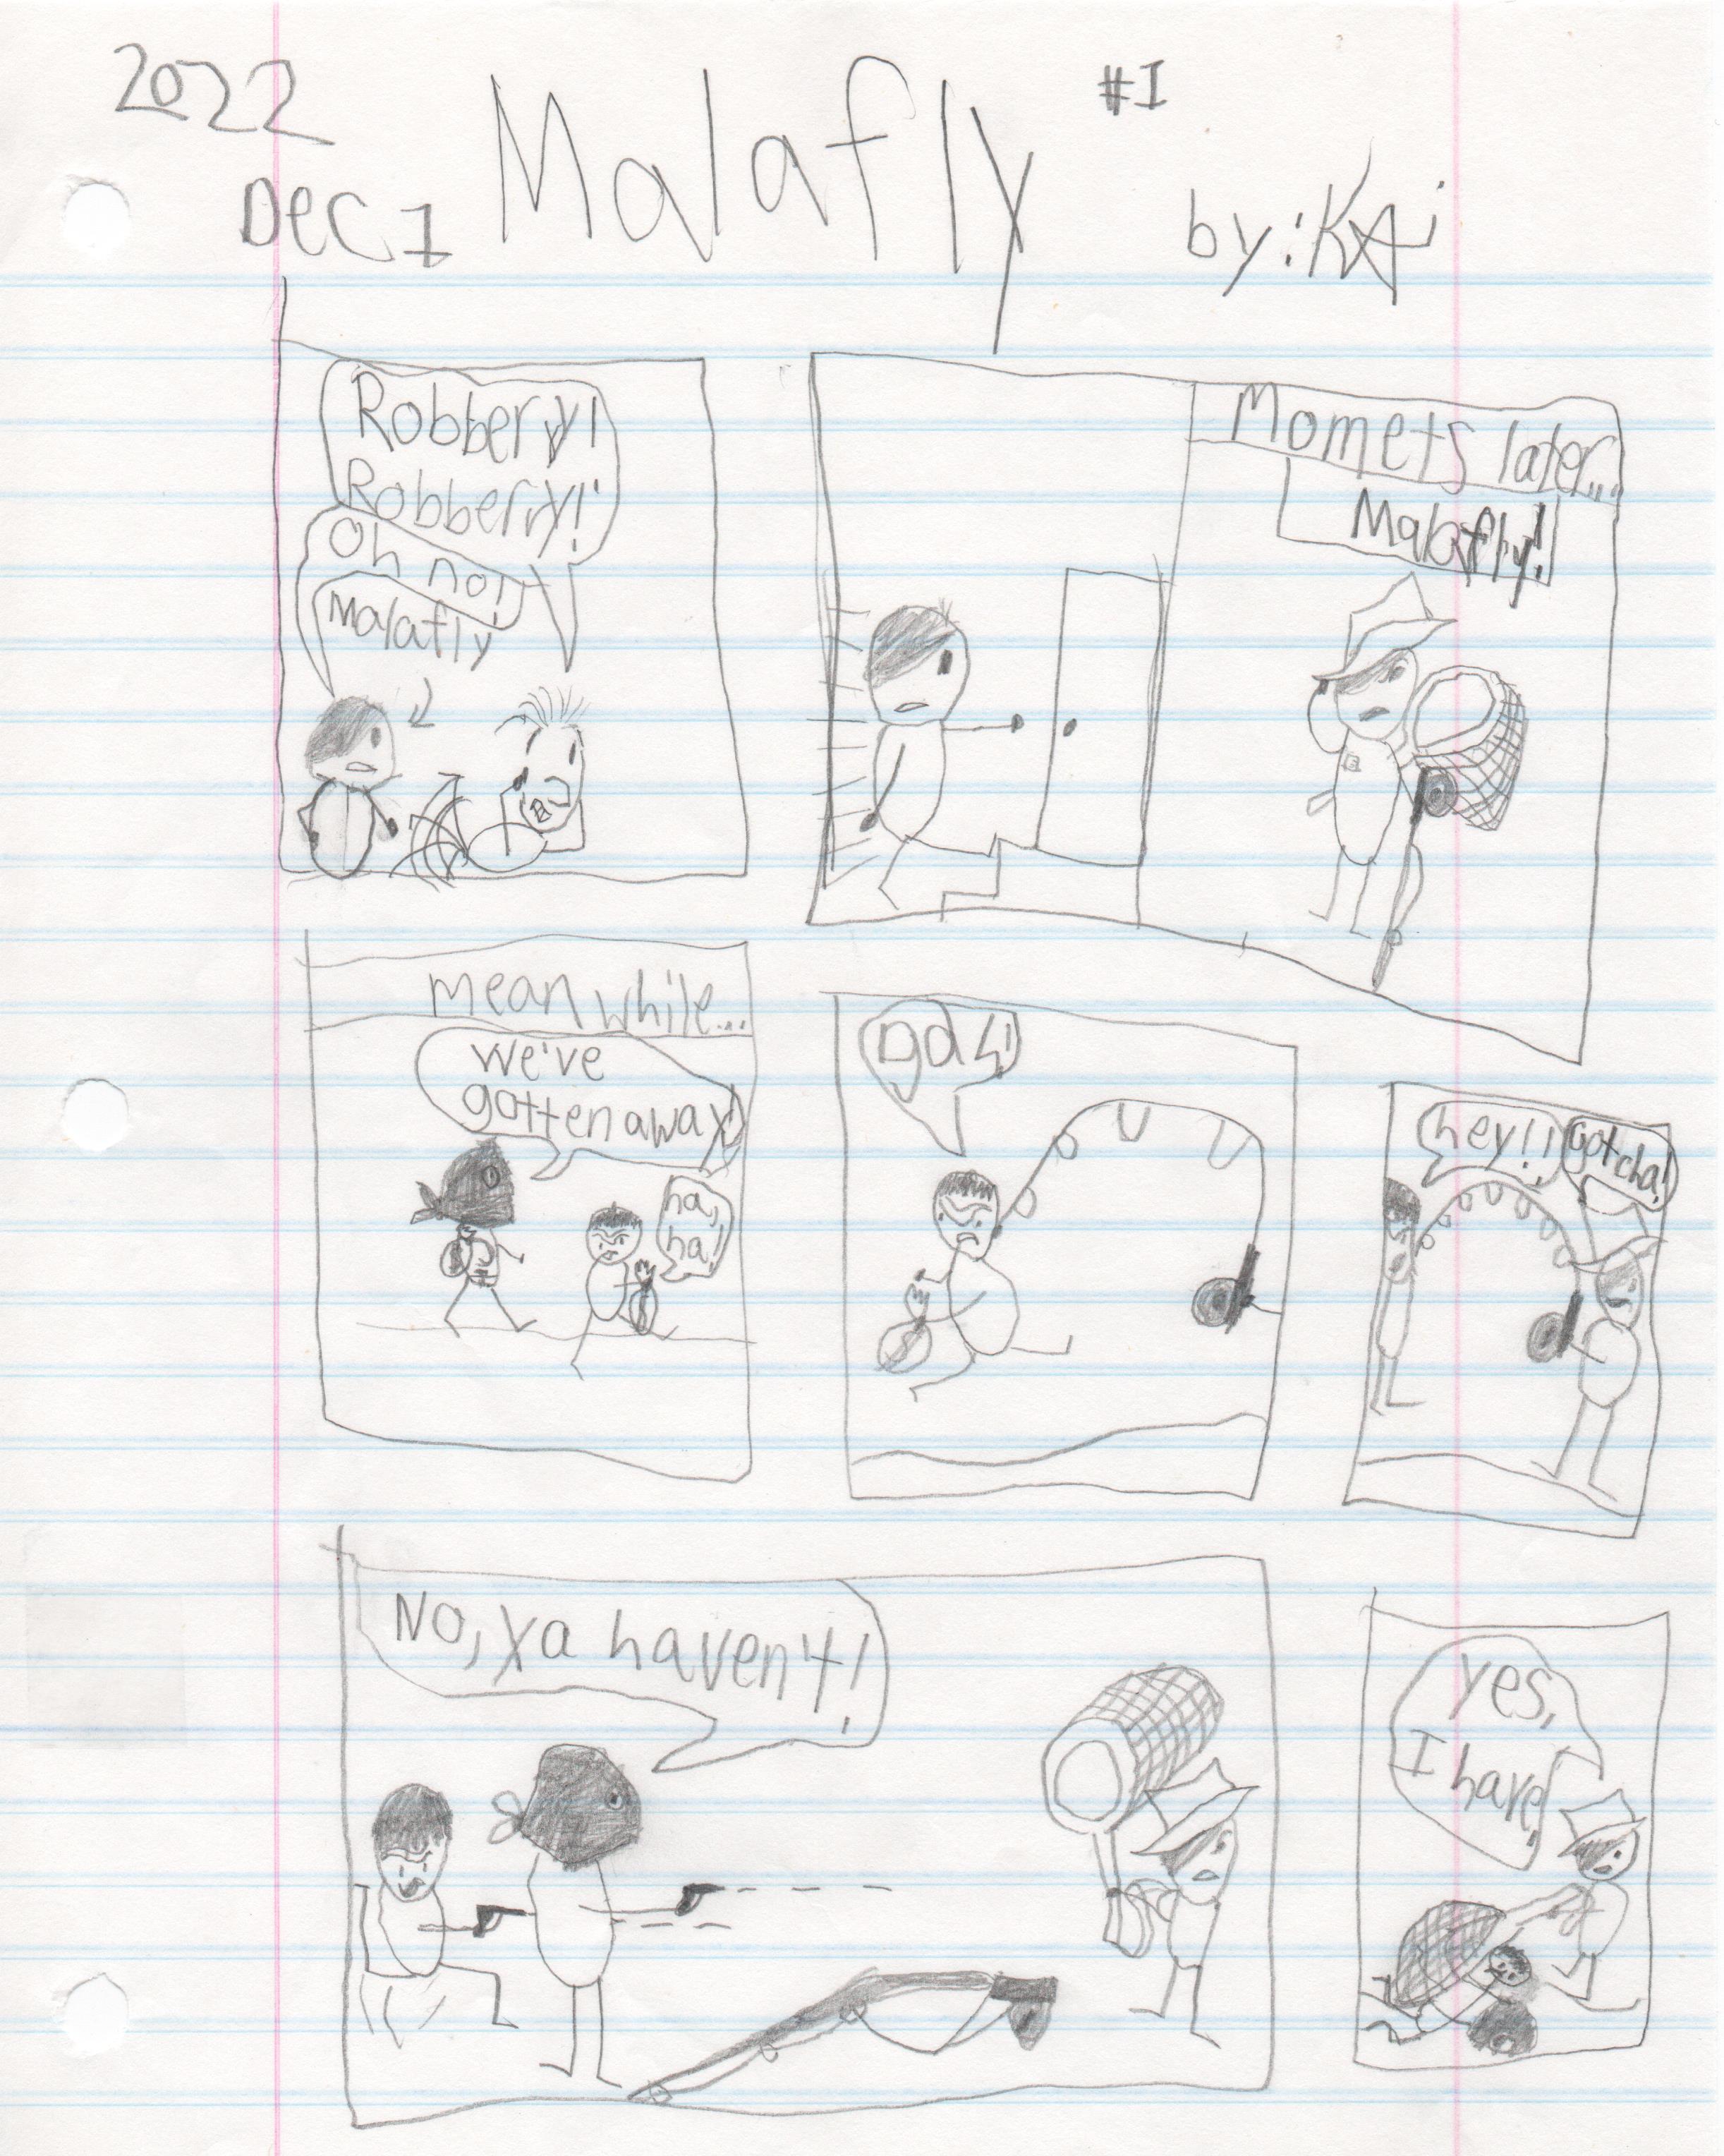 2022
Dec 1
Malafly
#1
by: KAi
Robberry!
Robberry!
Oh no!
Malafly
Momets later...
Malafly!
mean while...
We've
gotten away!
ha,
ha!
gah!
hey!!
gotcha!
No, ya haven't!
yes,
I have,